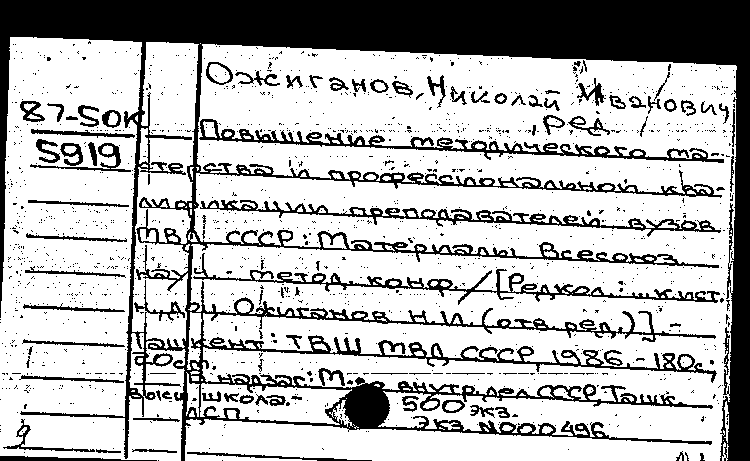 Ожиганов, Николай Иванович
, ред.
87-5ОК
5919
Повышение методического ма-
стерства и профессиональной ква-
лификации преподавателей вузов
МВД СССР: Материалы Всесоюз.
науч.- метод. конф. / [Редкол.: ... к.ист.
н., доц. Ожиганов Н.И. (отв. ред.)]. -
Ташкент: ТВШ МВД СССР, 1986. - 180с.;
20см.
В надзаг: М-во внутр. дел СССР, Ташк.
высш. школа.-
500 экз.
ДСП.
Экз. N000496
9